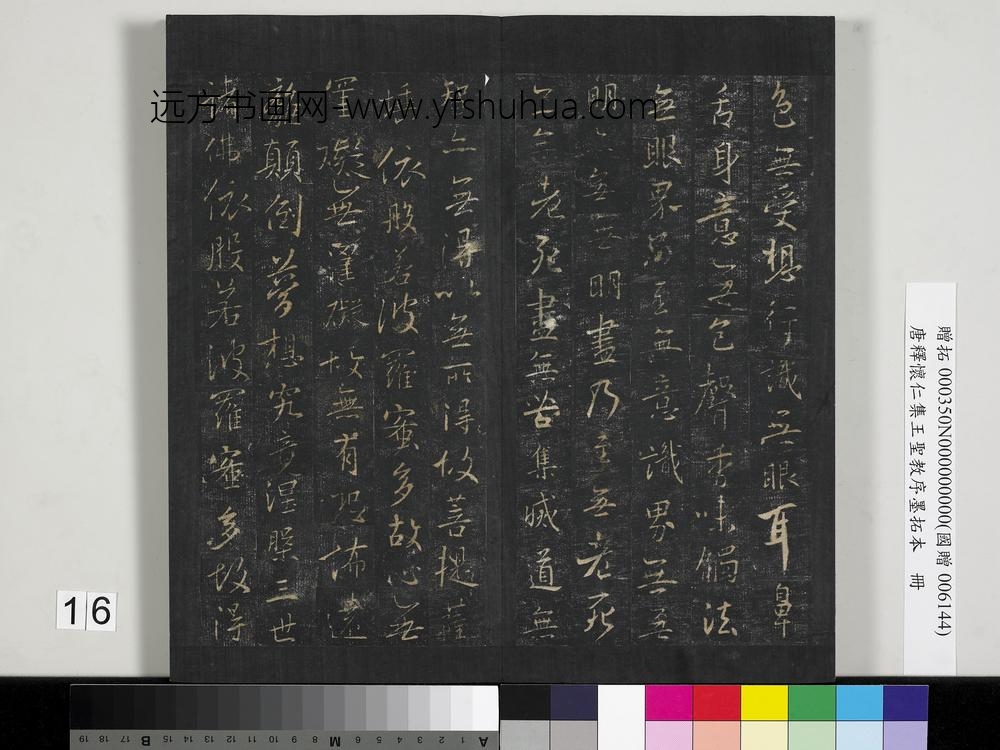 色無受想行識無眼耳鼻
舌身意無色聲香味觸法
無眼界乃至無意識界無無
明亦無無明盡乃至無老死
亦無老死盡無苦集滅道無
智亦無得以無所得故菩提薩
埵依般若波羅蜜多故心無
罣礙無罣礙故無有恐怖遠
離顛倒夢想究竟涅槃三世
諸佛依般若波羅蜜多故得
远方书画网-www.yfshuhua.com
贈拓 000350N000000000(國贈 006144)
唐釋懷仁集王聖教序墨拓本 冊
16
A 1 2 3 4 5 6 M 8 9 10 11 12 13 14 15 B 17 18 19